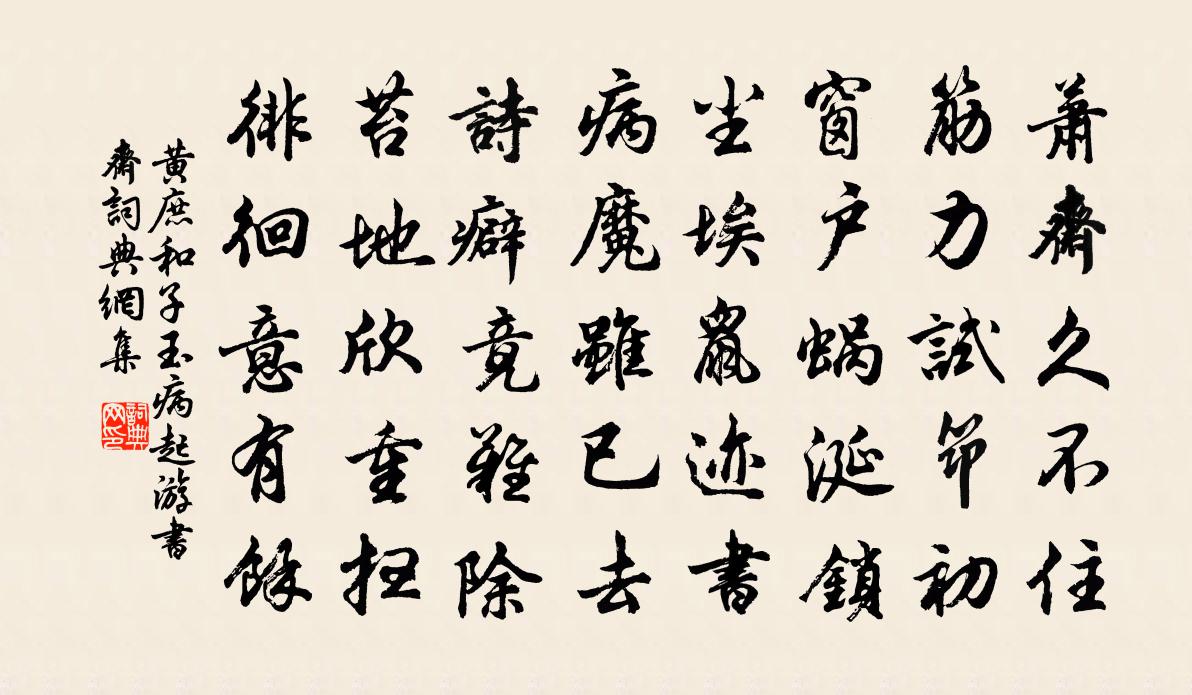 蕭齋久不住
筋力試筇初
窗户蝸涎鎖
尘埃鼠迹書
病魔雖已去
詩癖竟難除
苔地欣重扫
徘徊意有餘
黄庶和子玉病起游書
齋詞典網集
詞典
网印